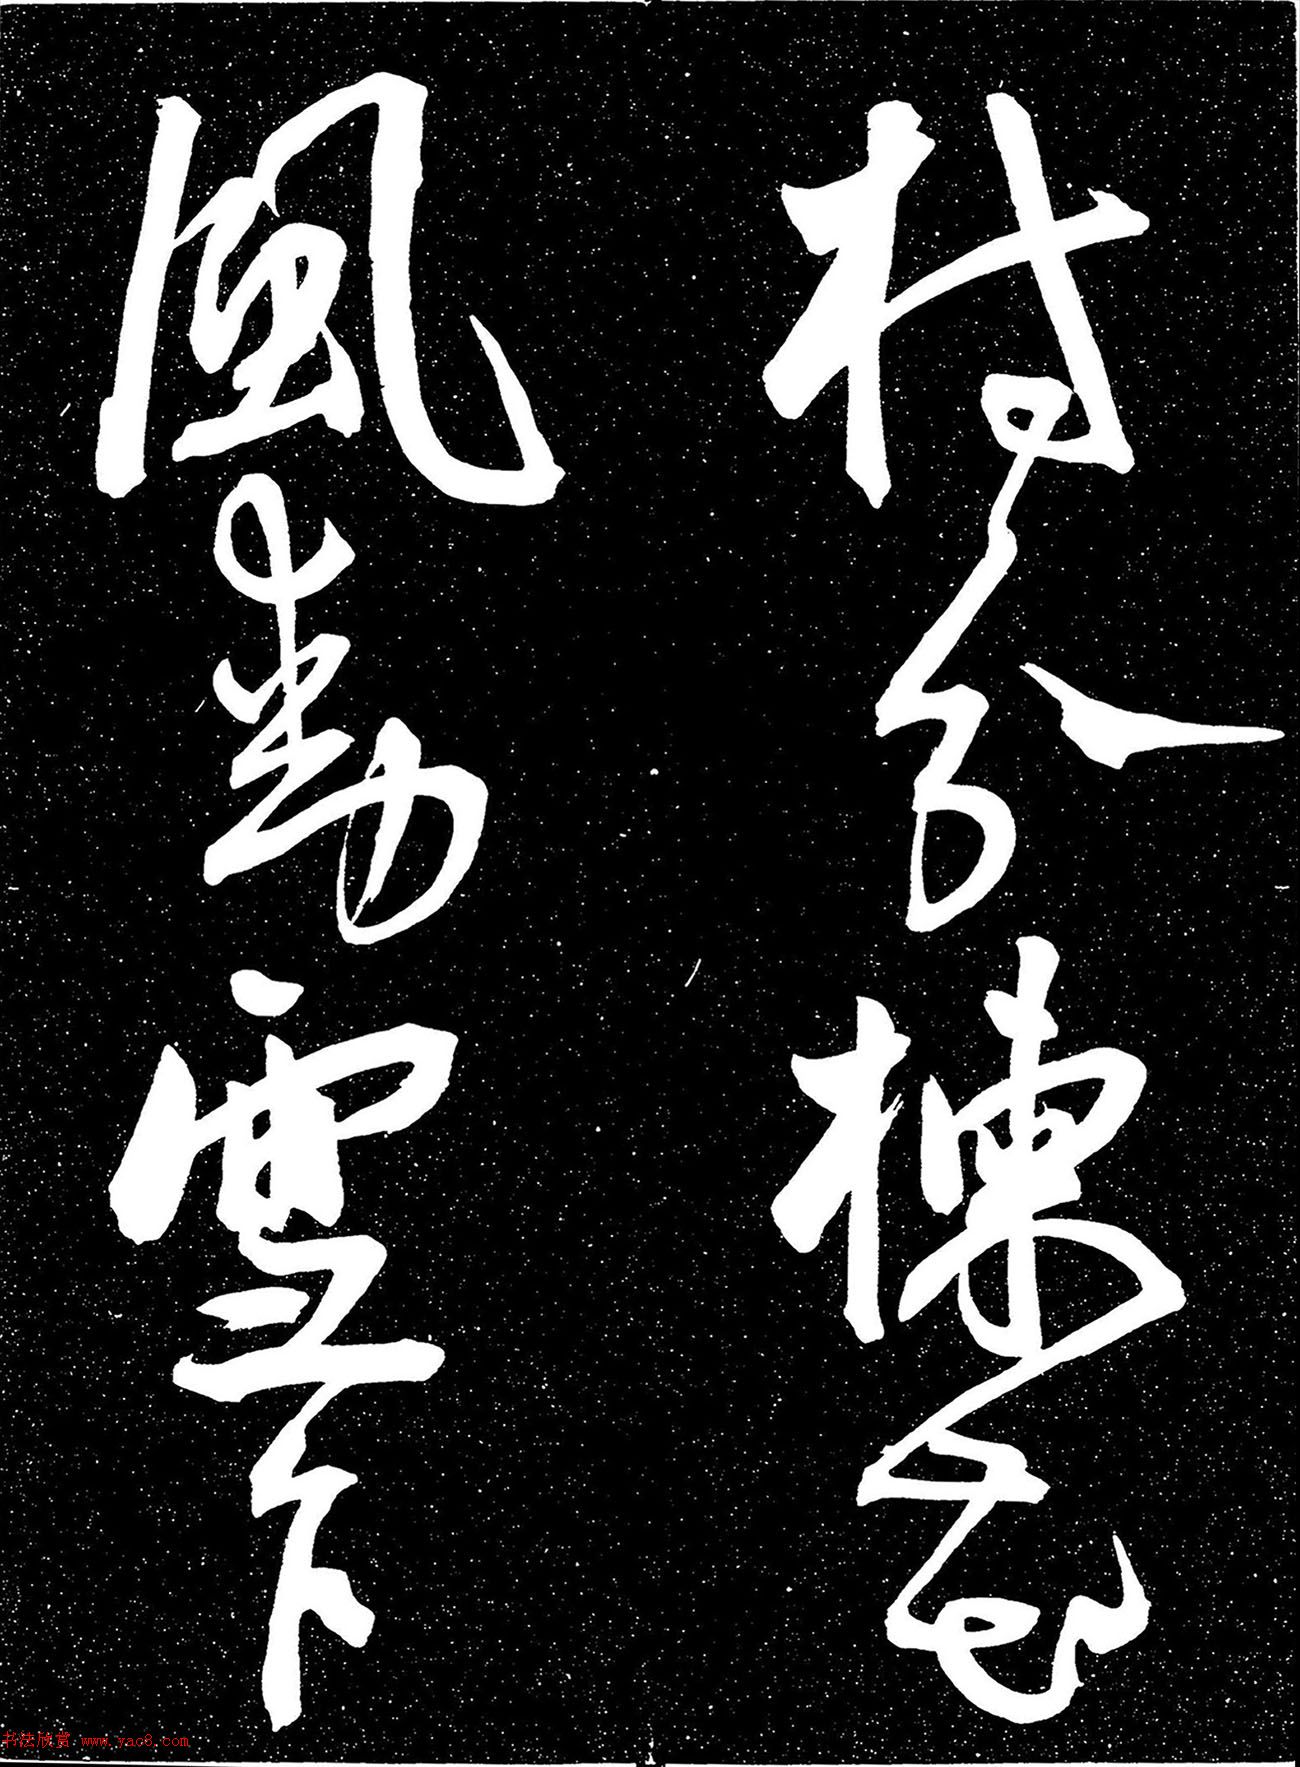 村分楝花
風動雲下
书法欣赏 www.yac8.com